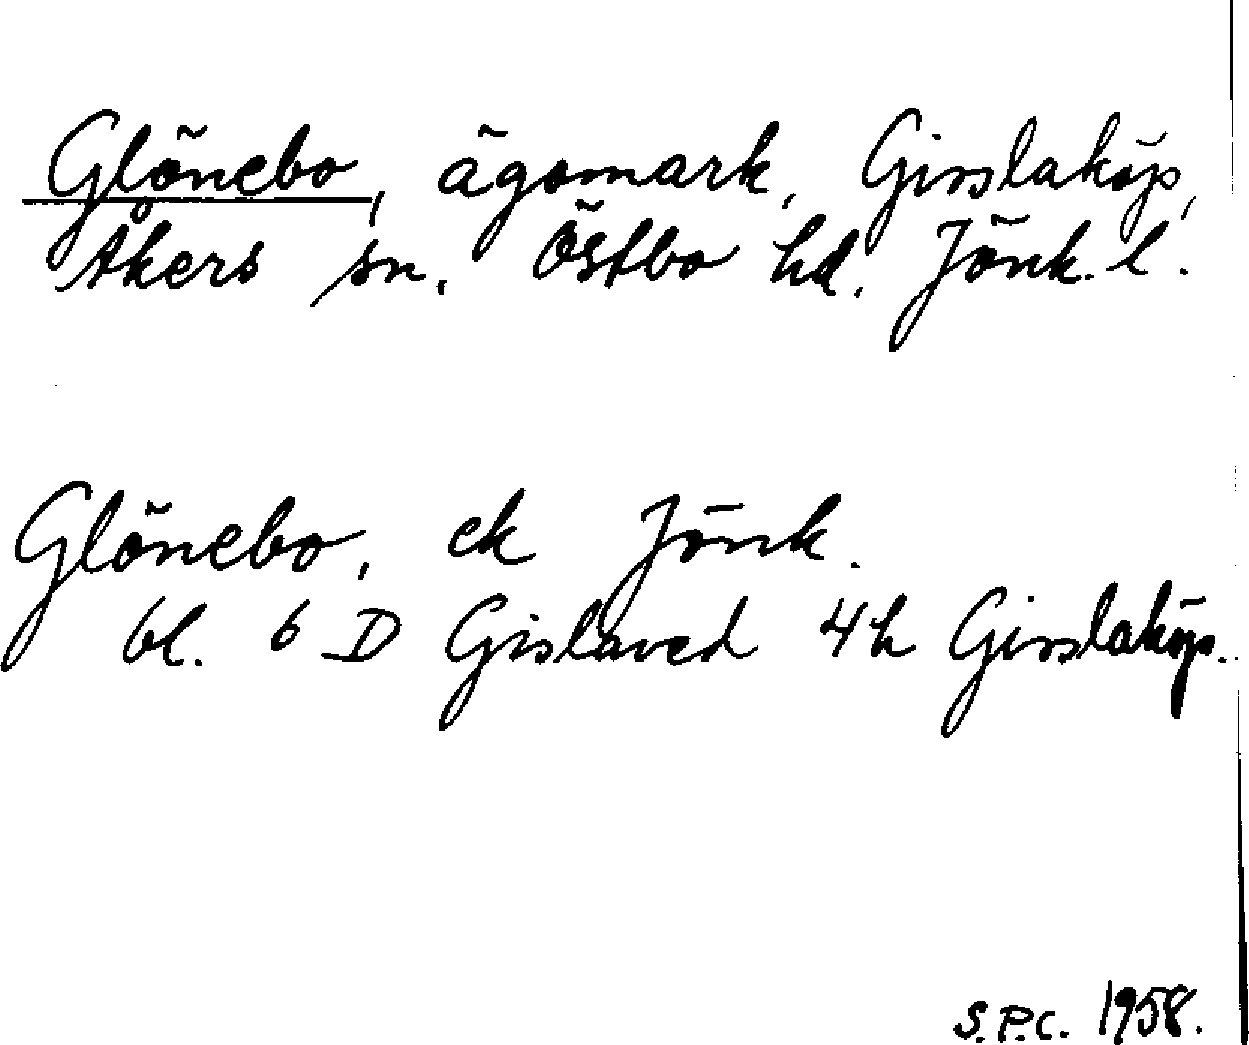 Glönebo, ägomark, Gisslaköp,
Åkers sn, Östbo hd. Jönk. l.
Glönebo, ek Jönk.
bl. 6 D Gislaved 4h Gisslaköp.
S.P.C. 1958.